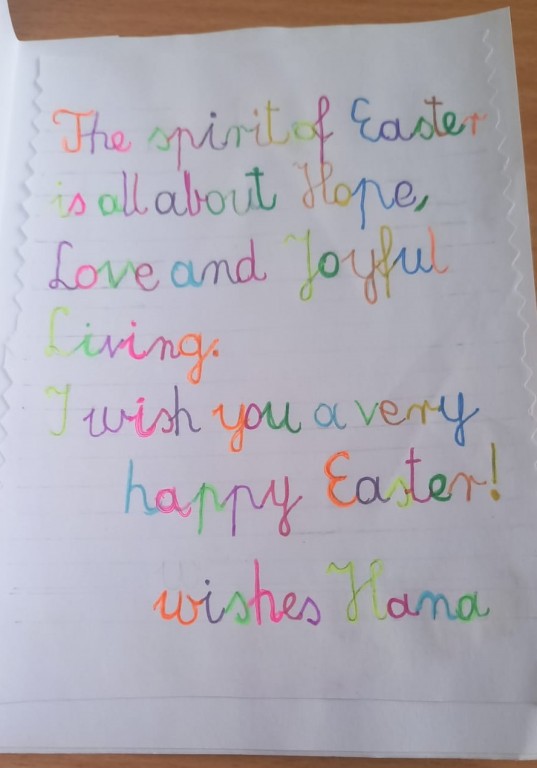 The spirit of Easter
is all about Hope,
Love and Joyful
Living.
I wish you a very
happy Easter!
wishes Hana